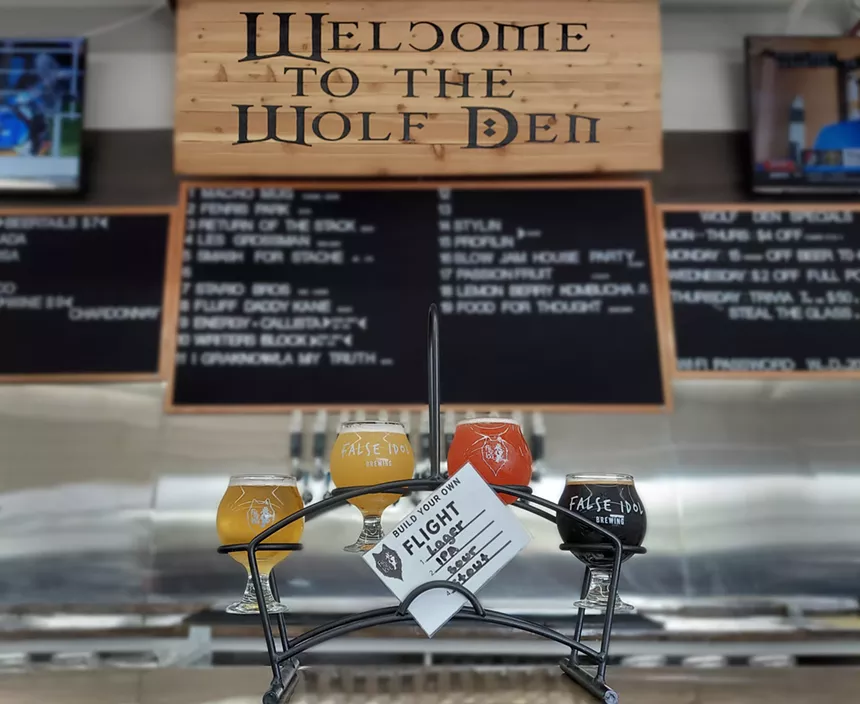 Welcome
to the
Wolf Den
1 MACRO MUG
2 FENRIS PARK
3 RETURN OF THE STACK
4 LES GROSSMAN
5 SMASH FOR STACHE
6
7 STARIO BROS
8 FLUFF DADDY KANE
9 ENERGY - CALLISTA
10 WRITERS BLOCK
11 I GRAKNOWLA MY TRUTH
12
13
14 STYLIN
15 PROFILIN
16 SLOW JAM HOUSE PARTY
17 PASSIONFRUIT
18 LEMON BERRY KOMBUCHA
19 FOOD FOR THOUGHT
CHARDONNAY
WOLF DEN SPECIALS
MON-THURS: $4 OFF
MONDAY: OFF BEER TO
WEDNESDAY: $2 OFF FULL
THURSDAY: TRIVIA
STEAL THE GLASS
WI-FI PASSWORD
FALSE IDOL
BREWING
FALSE IDOL
BREWING
BUILD YOUR OWN
FLIGHT
1. Lager
2. IPA
3. Sour
4. Stout